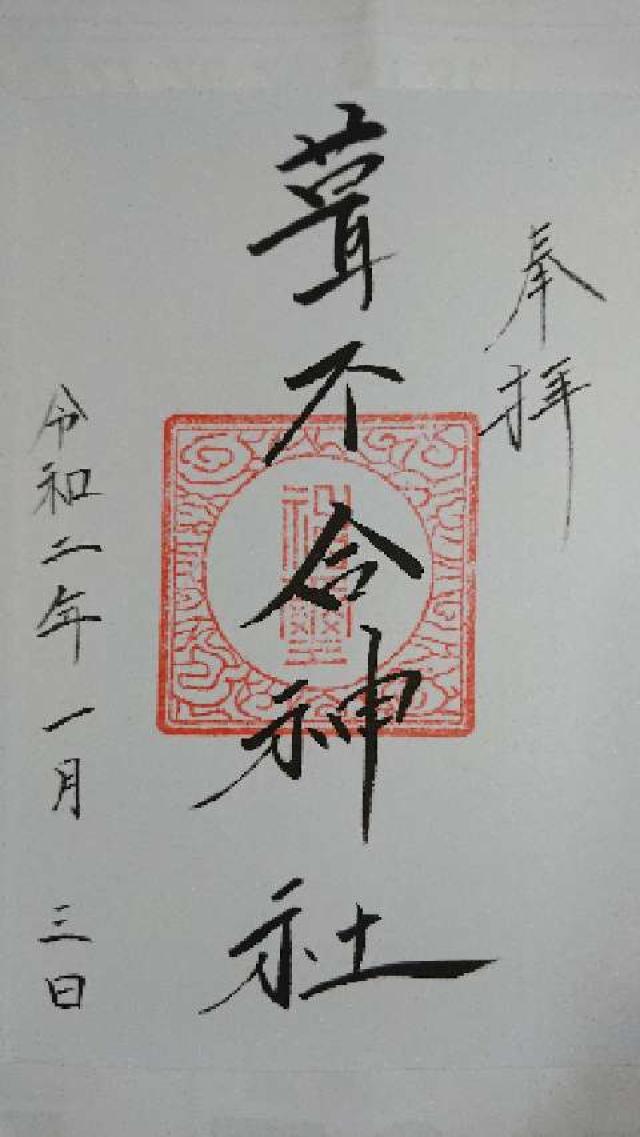 奉拝
葺不合神社
令和二年一月三日